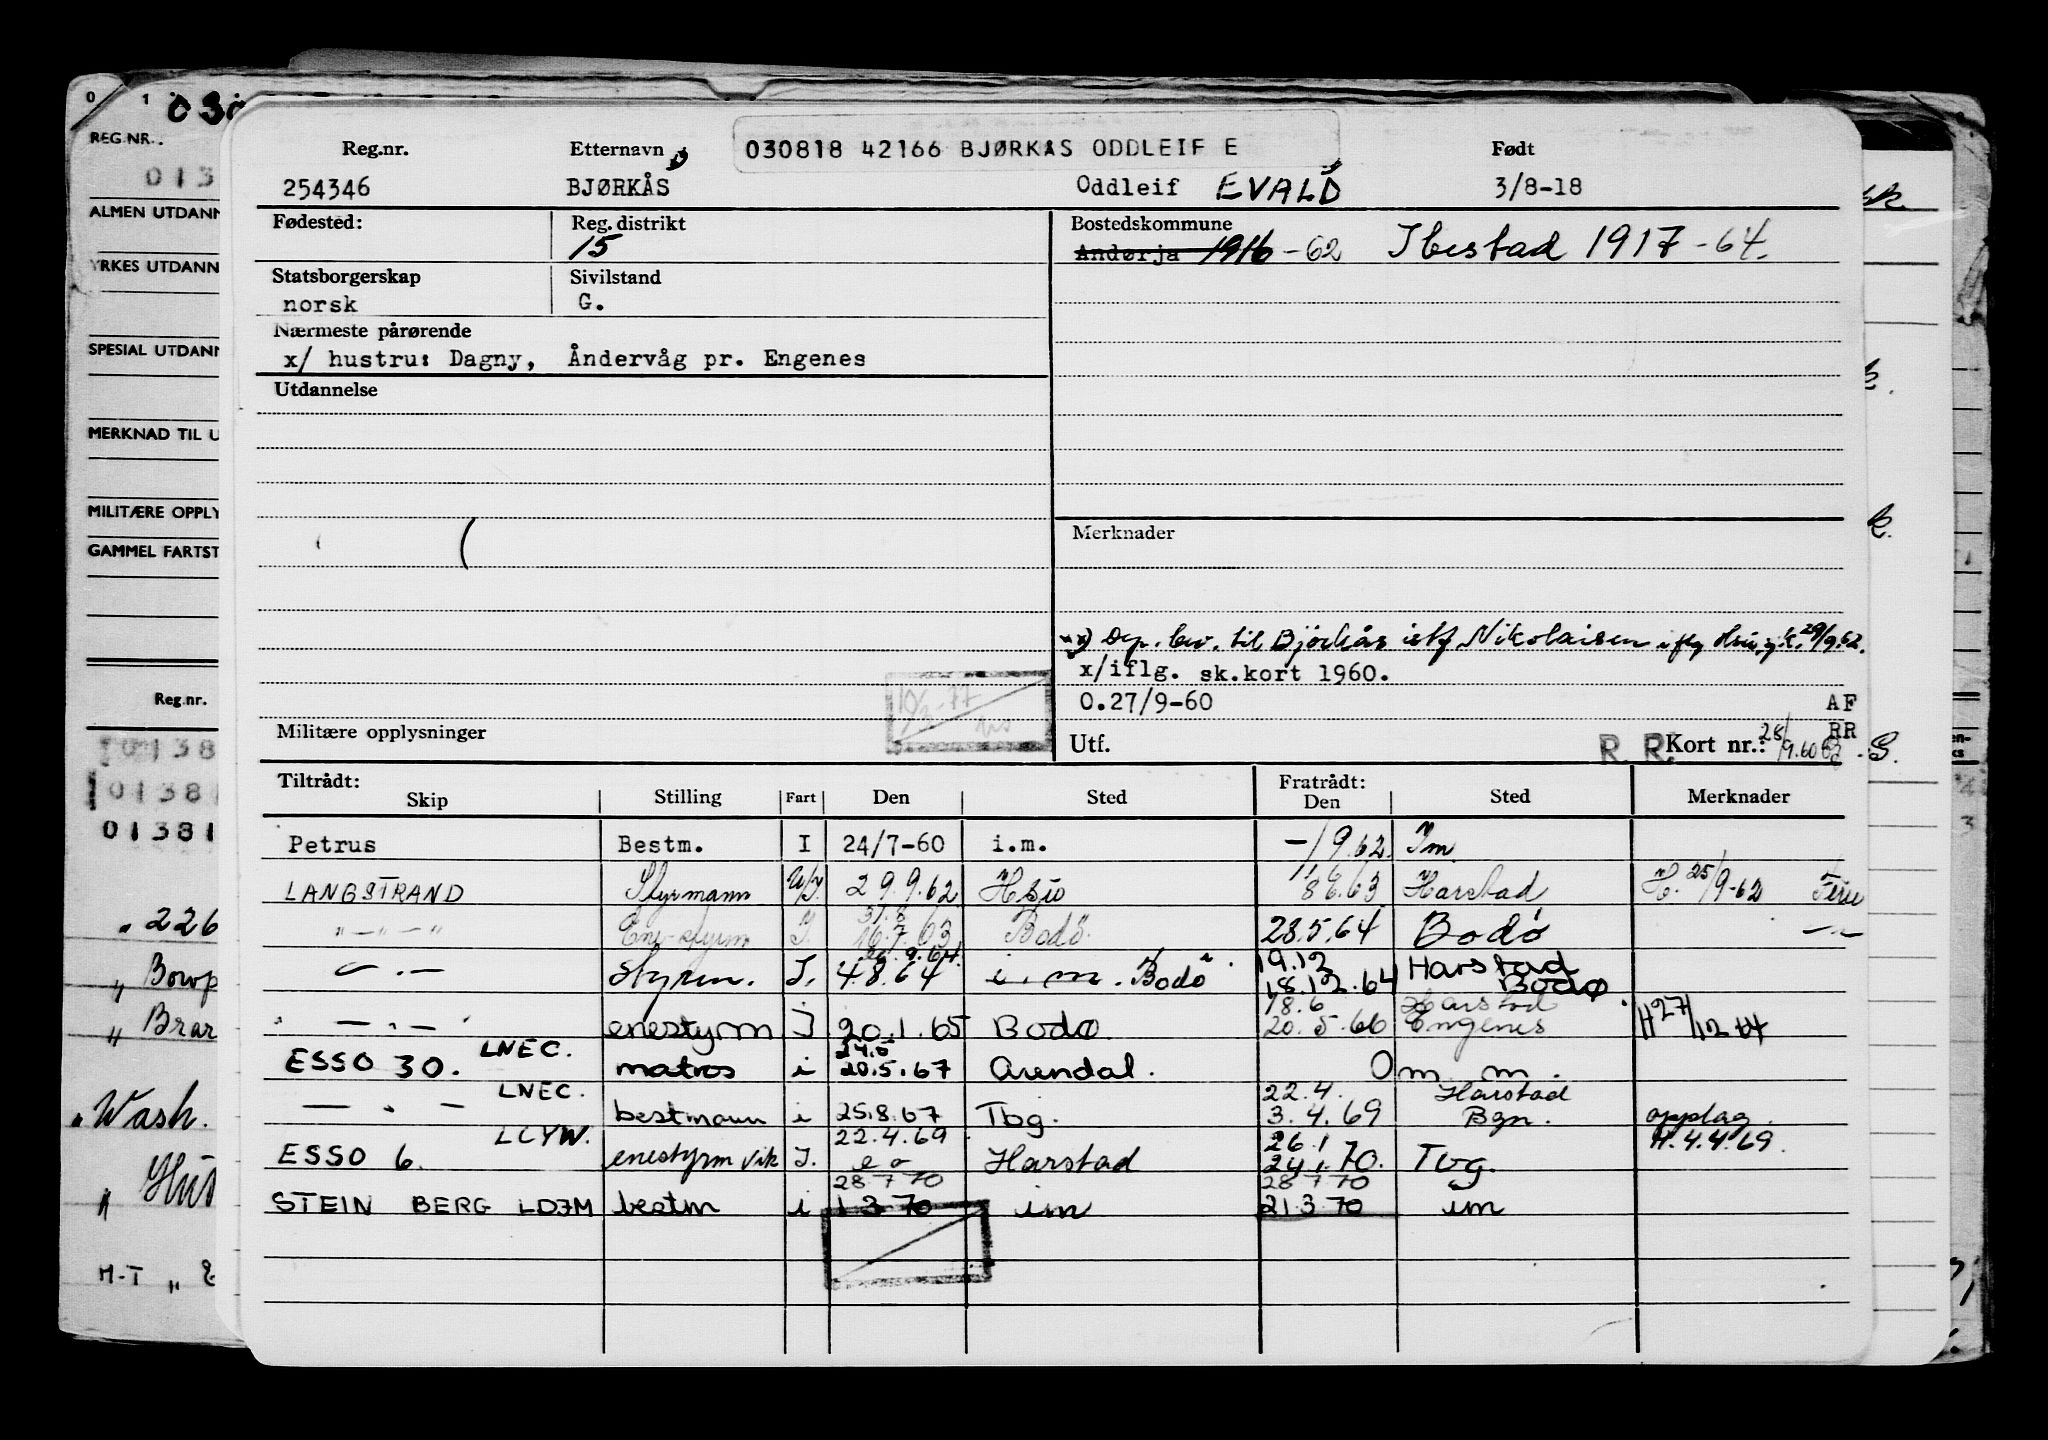 0 1 030
REG NR.
013
ALMEN UTDANN
YRKES UTDANN
SPESIAL UTDANN
MERKNAD TIL U
MILITÆRE OPPLY
GAMMEL FARTST
Reg.nr.
0138
0138
01381
„ 226
„ Brar
„ Wash.
M-T „
030818 42166 BJØRKÅS ODDLEIF E
Reg.nr. Etternavn Født
254346 BJØRKÅS Oddleif EVALD 3/8-18
Fødested: Reg. distrikt Bostedskommune
15 Andørja 1916 -62 Ibestad 1917 -64.
Statsborgerskap Sivilstand
norsk G.
Nærmeste pårørende
x/ hustru: Dagny, Åndervåg pr. Engenes
Utdannelse
Merknader
x) Dep. bev. til Bjørkås istf Nikolaisen iflg Hsu. 29/9.62.
x/iflg. sk.kort 1960.
0.27/9-60 AF
Militære opplysninger Utf. R. R. Kort nr.: 28/9.60 RR
Tiltrådt: Fratrådt:
Skip Stilling Fart Den Sted Den Sted Merknader
Petrus Bestm. I 24/7-60 i.m. -/9.62. Im
LANGSTRAND Styrmann U/I. 29.9.62 Hsu 8.6.63 Harstad H. 25/9-62
" — " — " Ene-styrm I. 31.8 16.7.63 Bodø 28.5.64 Bodø
— " — Styrm. I. 4.8.64 i.m. Bodø 19.12 18.12.64 Harstad Bodø
" — " — enestyrm I 20.1.65 Bodø 18.6 20.5.66 Harstad Engenes H 27/12 64
ESSO 30. LNEC. matros i 24.5 20.5.67 Arendal. Om m.
— " — LNEC. bestmann i 25.8.67 Tbg. 22.4. 3.4.69 Harstad Bgn. opplag.
ESSO 6. LCYW. enestyrm vik I. 22.4.69 Harstad 26.1 24.1.70. Tvg. H.4.4.69.
STEIN BERG LDJM bestm i 28 7 70 1 3 70 im 28 7 70 21.3.70 im